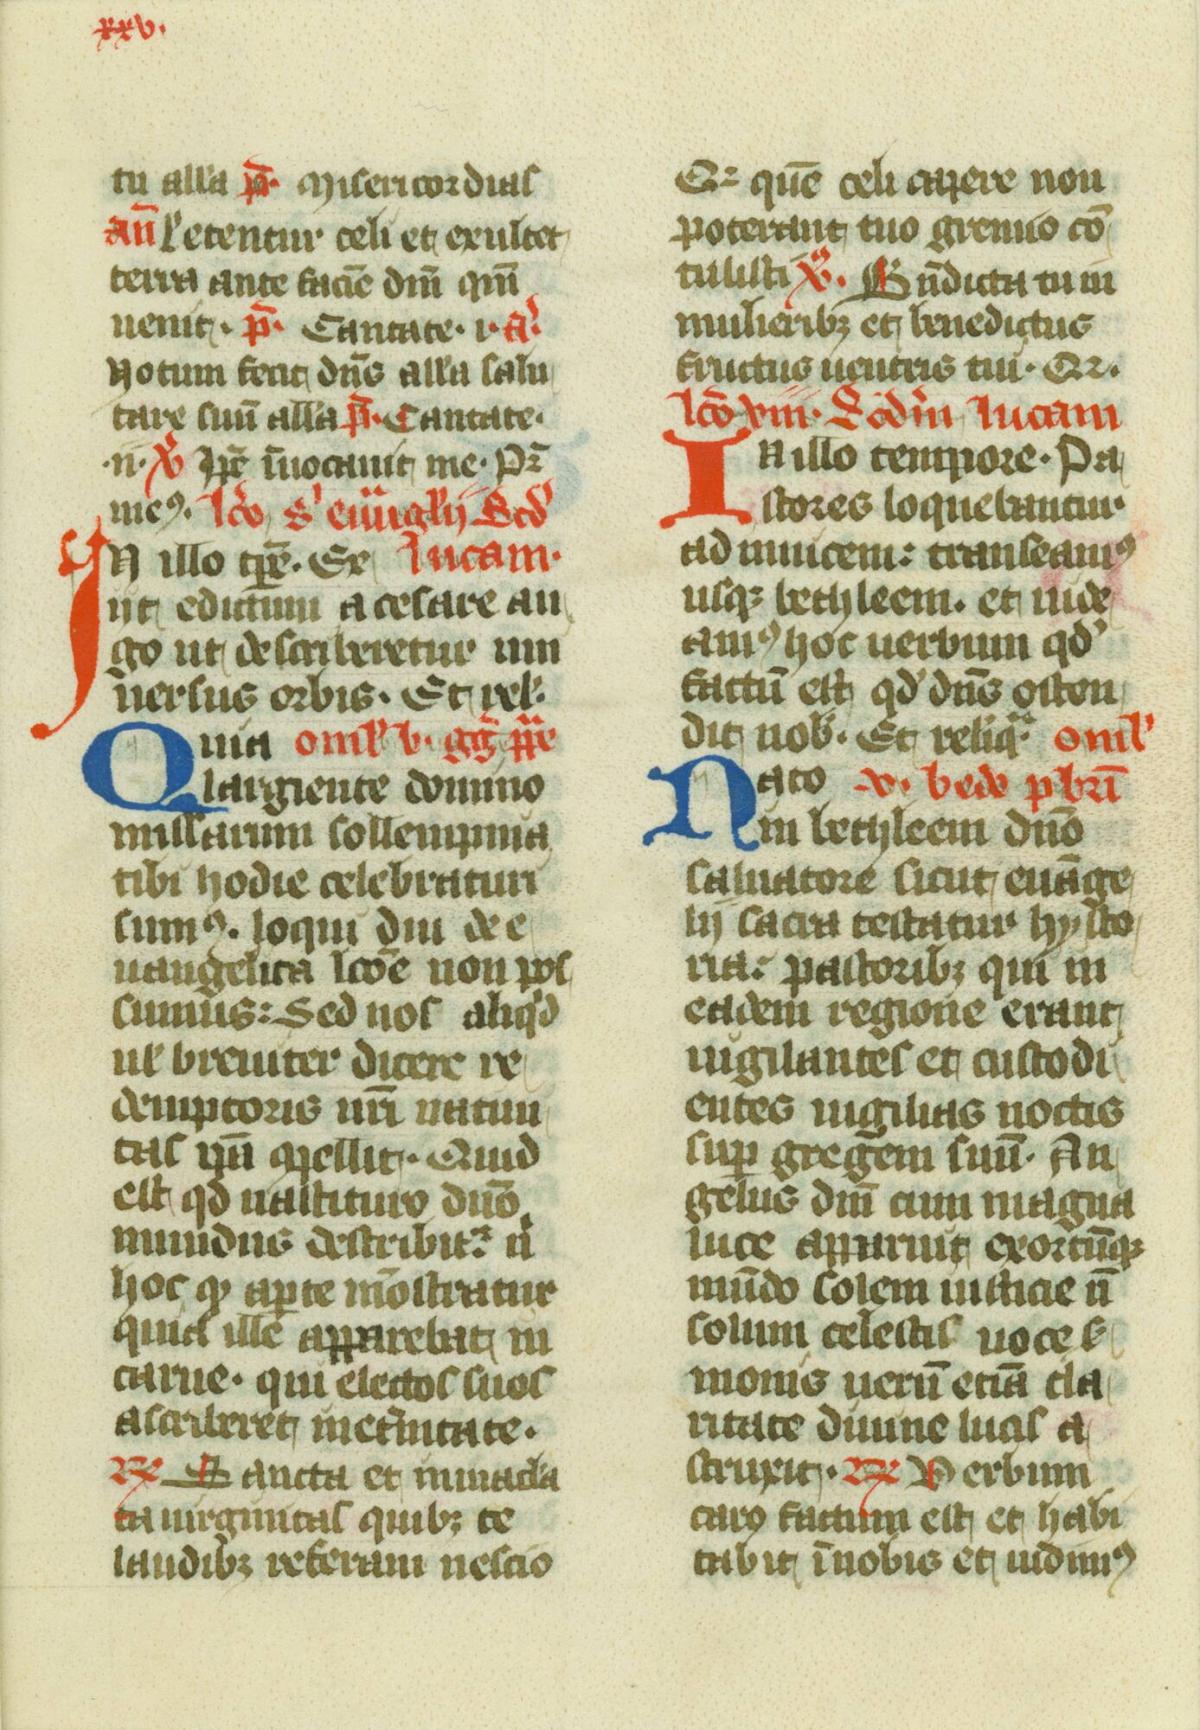 xxv.
tu alla p̄. Misericordias
an̄ Letentur celi et exultet
terra ante faciē dn̄i qm̄
uenit. p̄. Cantate. i. a.
Notum fecit dn̄s alla salu
tare suū alla p̄. Cantate.
.ii. v̄ Ip̄e īuocauit me. Pr̄
meꝰ. lc̄o s. euuāglij Scd̓
IN illo tp̄e. Ex lucam.
iit edictum a cesare au
go ut describeretur uni
uersus orbis. Et rel̓.
Quia omīl̓ b. gg̓ pp̄e
largiente domino
missarum sollempnia
tibi hodie celebraturi
sumꝰ. loqui diu de e
uangelica lcōe non pos
sumus: Sed nos aliqd̓
ul̓ breuiter dicere re
demptoris nr̄i natiui
tas ip̄a ꝯpellit. Quid
est qd̓ nascituro dn̄o
mundus describit̓ n̄
hoc ꝙ aꝑte mōstratur
quia ille apparebat in
carne. qui electos suos
ascriberet in et̓nitate.
℞ Sancta et inmacula
ta uirginitas quibꝫ te
laudibꝫ referam nescio
Qr̓ quē celi capere non
poterant tuo gremio cō
tulisti ℣. Bn̄dicta tu in
mulieribꝫ et benedictus
fructus uentris tui. Qr̓.
lc̄o viii. Scd̓m lucam
IN illo tempore. Pa
stores loquebantur
ad inuicem: transeamꝰ
usqꝫ bethleem. et uide
amꝰ hoc uerbum qd̓
factū est qd̓ dn̄s osten
dit nob̓. Et reliqᵃ. omīl̓
Nato v. bede pbr̄i
in bethleem dn̄o
saluatore sicut euāge
lij sacra testatur hysto
ria: pastoribꝫ qui in
eadem regione erant
uigilantes et custodi
entes uigilias noctis
suꝑ gregem suū. An
gelus dn̄i cum magna
luce apparuit exortūqꝫ
mūdo solem iusticie n̄
solum celestis uoce s̓
monis uerū etiā cla
ritate diuine lucis a
struxit. ℞ Verbum
caro factum est et habi
tabit ī nobis et uidimꝰ